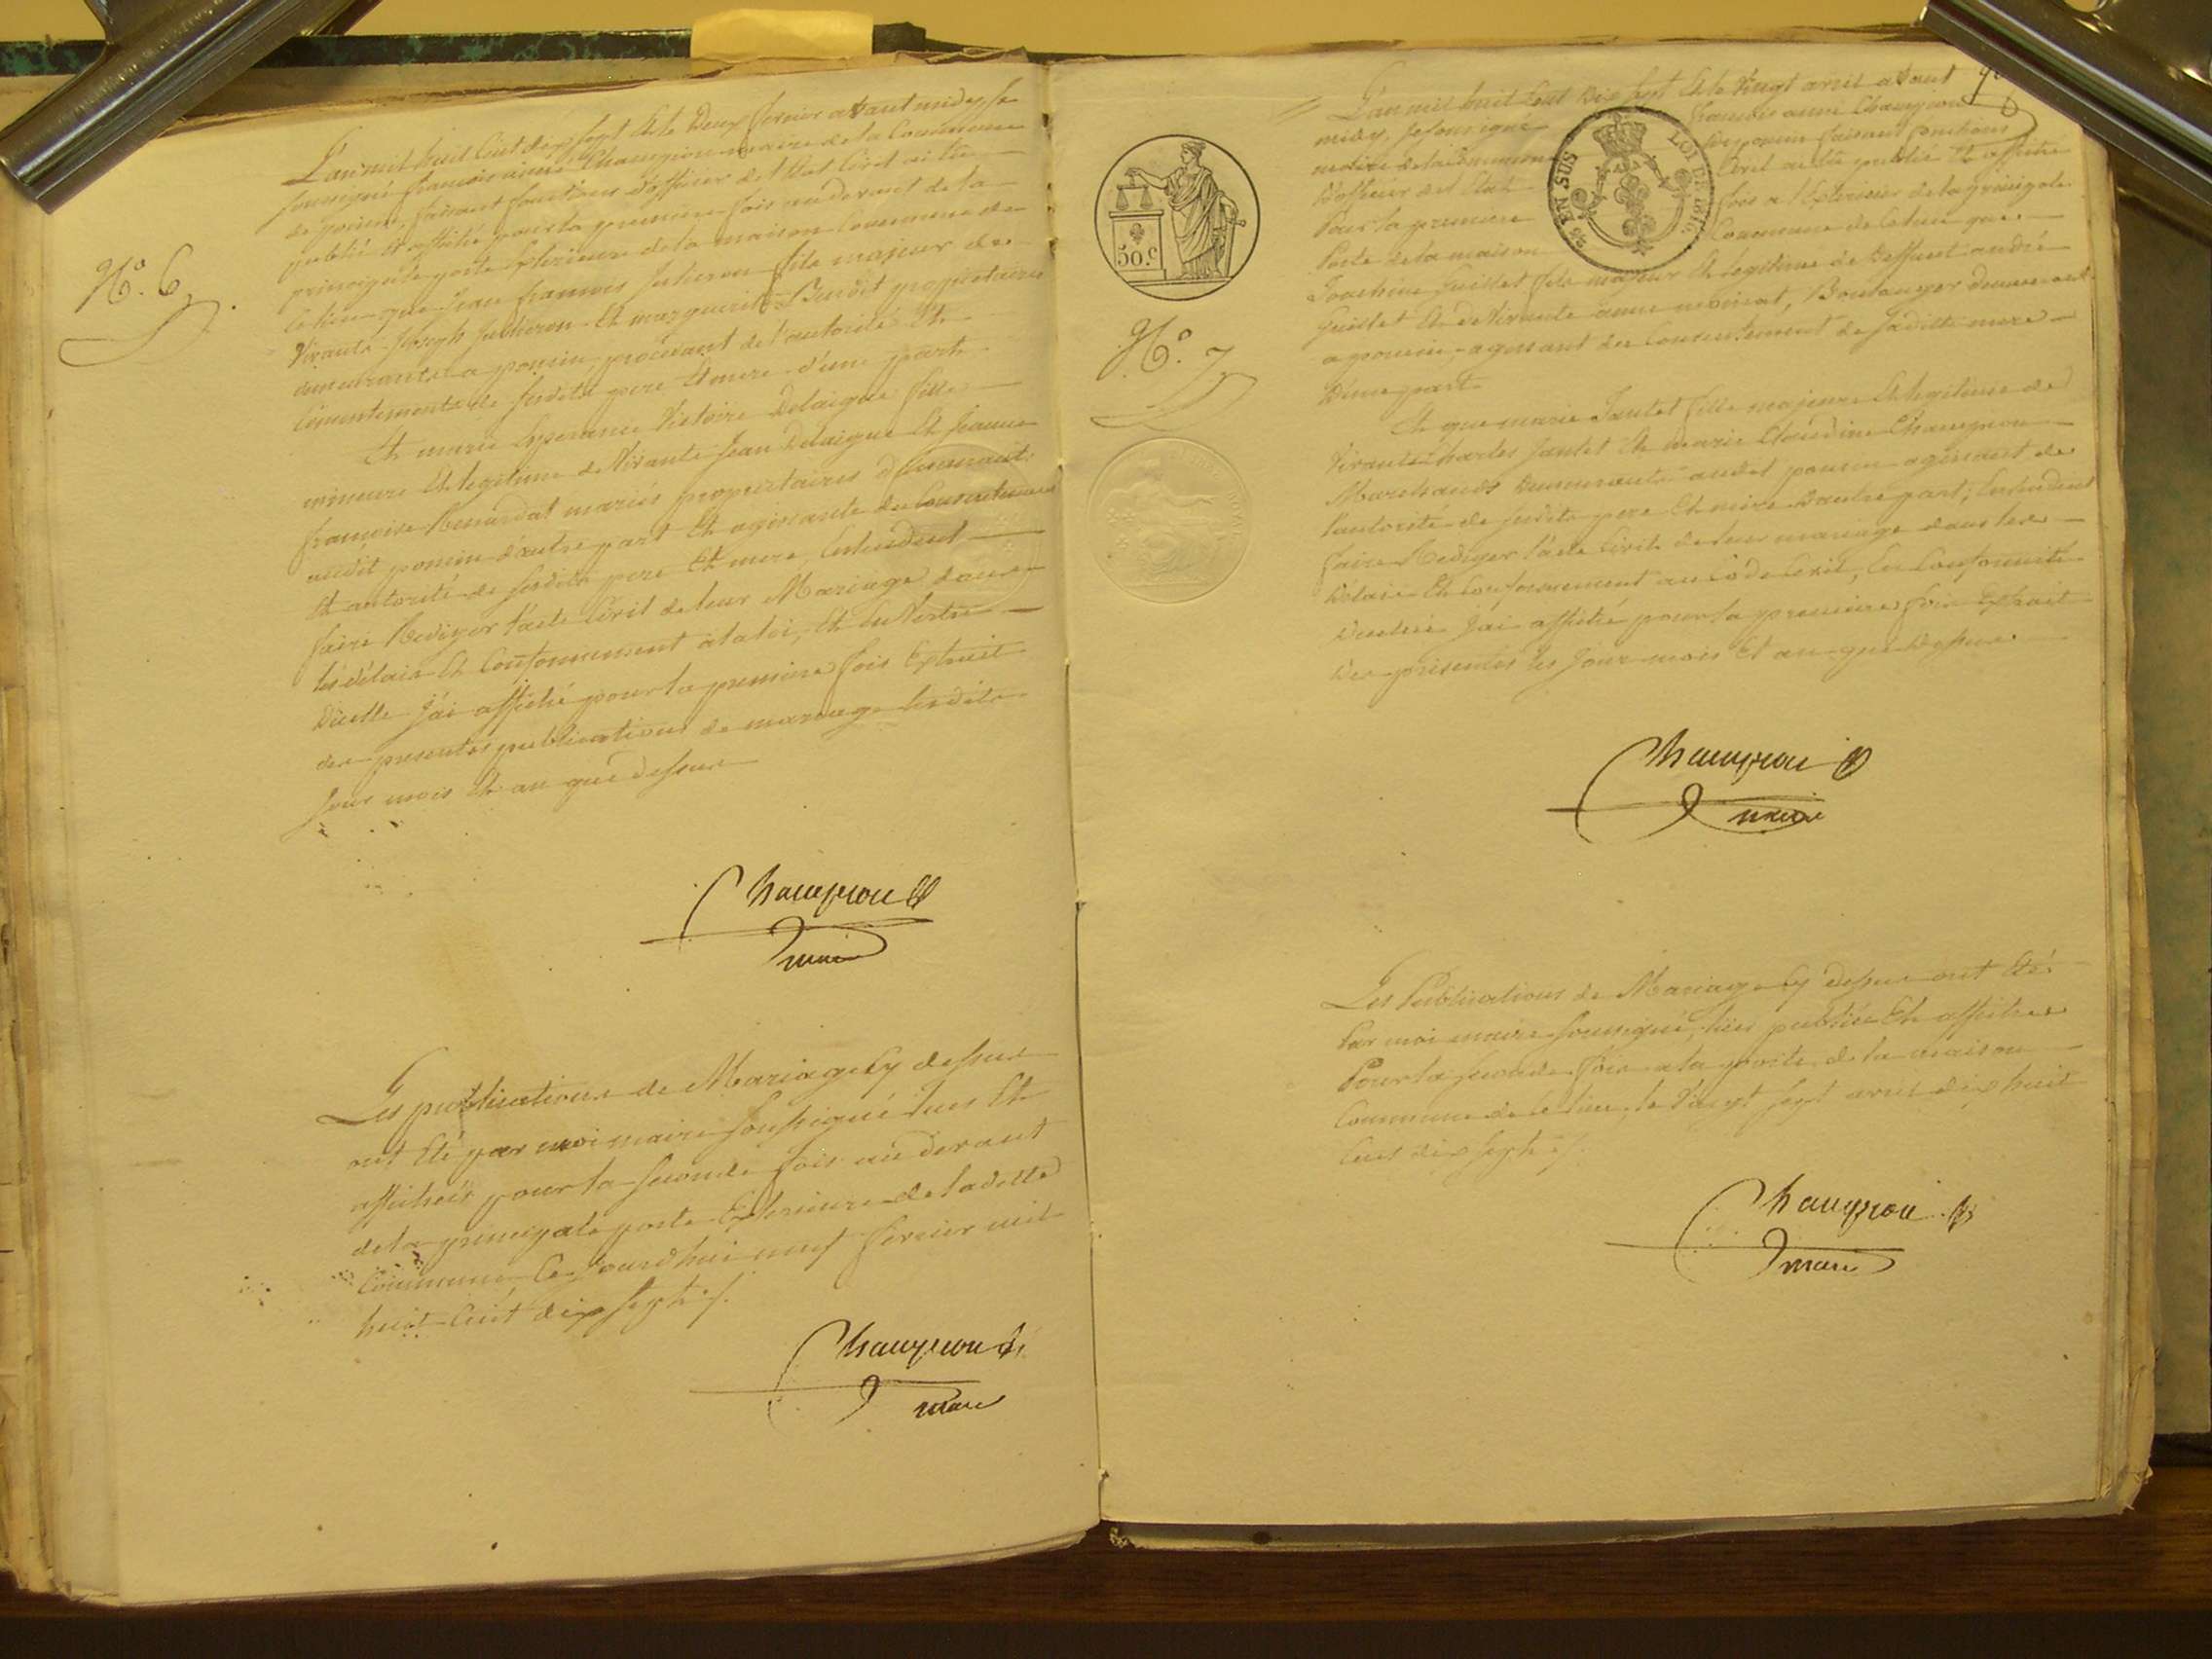 L'an mil huit Cent dix sept Et le Deux fevrier avant midy Je
soussigné francois aimé Champion maire de la Commune
de poncin, faisant fonctions d'officier de l'Etat Civil ai lu
publié Et affiché pour la premiere fois au devant de la
principale porte Exterieure de la maison Commune de
Ce lieu que Jean francois fils majeur de
Vivants Joseph Et marguerite Benoit proprietaires
demeurants a poncin, procedant de l'autorité Et
Consentement de Sesdits pere Et mere d'une part
N.o 6
Et marie Esperance Victoire Delaigue fille
mineure Et legitime de Vivants Jean Delaigue Et Jeanne
francoise mariés proprietaires demeurants
audit poncin d'autre part Et agissante du Consentement
Et autorité de Sesdits pere Et mere, Entendent
faire Rediger l'acte Civil de leur Mariage dans
les délais Et Conformement a la loi, Et En Vertu
D'icelle J'ai affiché pour la premiere fois Extrait
des presentes publications de mariage lesdits
Jour mois Et an que dessus
Champion
maire
Les publications de Mariage Cy dessus
ont Eté par moi maire soussigné lues Et
affichées pour la seconde fois au devant
de la principale porte Exterieure de ladette
Commune Ce Jourdhui neuf fevrier mil
huit Cent dix sept ./.
Champion
maire
L'an mil huit Cent Dix sept Et le Vingt avril avant
midy, Je soussigné francois aimé Champion
maire de la Commune de poncin faisant fonctions
D'officier de l'Etat Civil ai lu publié Et affiché
Pour la premiere fois a l'Exterieur de la principale
Porte de la maison Commune de Ce lieu que
50.C
25 EN SUS LOI DE 1816.
N.o 7
Guillet fils majeur Et legitime de Deffunt andré
Guillet Et de Vivante anne Boulanger demeurant
a poncin, agissant du Consentement de Saditte mere
D'une part
Et que marie Jantet fille majeure Et legitime de
Vivants Charles Jantet Et marie Claudine Champion
Marchands Demeurants audit poncin agissant de
l'autorité de Sesdits pere Et mere D'autre part, Entendent
faire Rediger l'acte Civil de leur mariage dans les
Délais Et Conformement au Code Civil, En Conformité
Duquel J'ai affiché pour la premiere fois Extrait
Des presentes les Jour mois Et an que Dessus
Champion
maire
Les Publications de Mariage Cy dessus ont Eté
Par moi maire soussigné, lües publiées Et affichées
Pour la seconde fois a la porte de la maison
Commune de Ce lieu, le Vingt sept avril dix huit
Cent dix sept ./.
Champion
maire